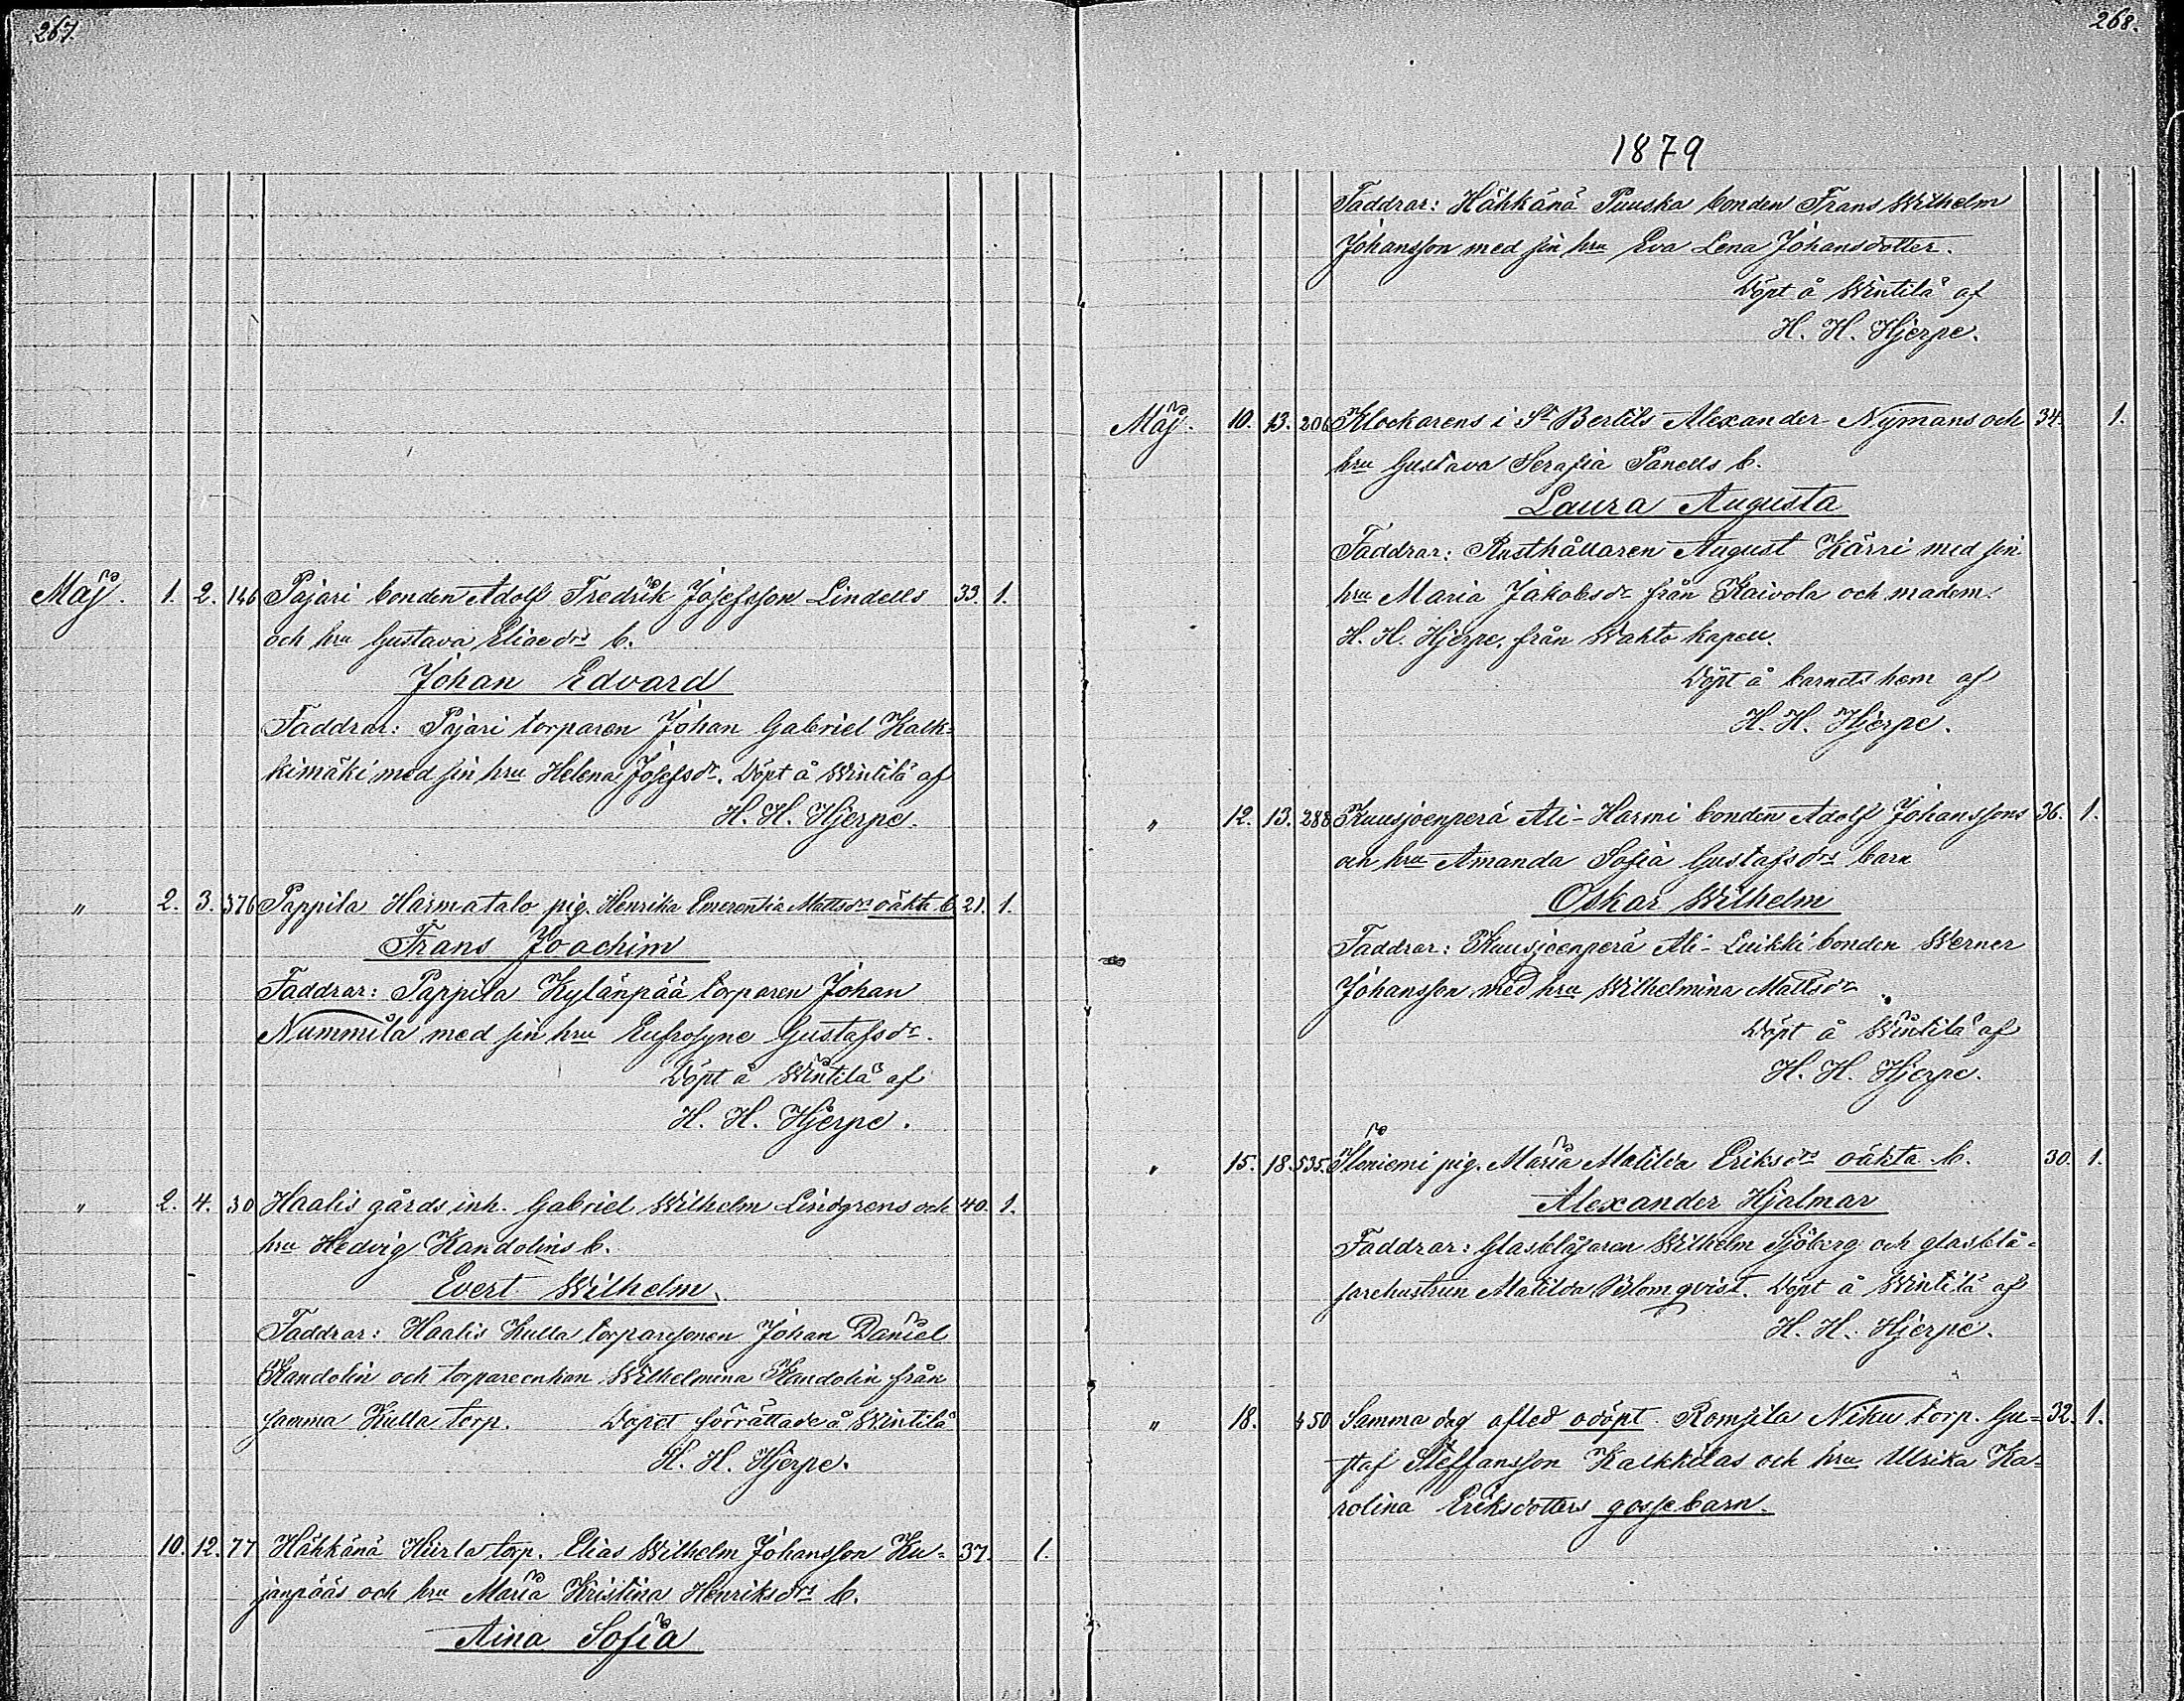 267.
Maj. 1. 2. 146 Pajari bonden Adolf Fredrik Josefsson Lindells 33. 1.
och hru Gustava Eliaedrs b.
Johan Edvard
Faddrar: Pajari torparen Johan Gabriel Kalk=
kimäki med sin hru Helena Josefsdr. Döpt å Wintilä af
H. H. Hjerpe.
" 2. 3. 376 Pappila Härmätalo pig. Henrika Emerentia Mattsdrs oäkta b. 21. 1.
Frans Joachim
Faddrar: Pappila Kylänpää torparen Johan
Nummila med sin hru Eufrosyne Gustafsdr.
Döpt å Wintilä af
H. H. Hjerpe.
" 2. 4. 30 Haalis gårds inh. Gabriel Wilhelm Lindgrens och 40. 1.
hru Hedvig Kandolins b.
Evert Wilhelm
Faddrar: Haalis Kulla torparesonen Johan Daniel
Kandolin och torpareenkan Wilhelmina Kandolin från
samma Kulla torp. Dopet förrättade å Wintilä
H. H. Hjerpe.
10. 12. 77 Hähkänä Heirla torp. Elias Wilhelm Johansson Ku= 37. 1.
janpääs och hru Maria Kristina Henriksdrs b.
Aina Sofia
268.
1879
Faddrar: Hähkänä Puuska bonden Frans Wilhelm
Johansson med sin hru Eva Lena Johansdotter.
Döpt å Wintilä af
H. H. Hjerpe.
Maj. 10. 13. 206 Klockarens i St Bertils Alexander Nymans och 34. 1.
hru Gustava Serafia Panells b.
Laura Augusta
Faddrar: Rusthållaren August Kärri med sin
hru Maria Jakobsdr från Kaivola och madem.
H. H. Hjerpe, från Wahto kapell.
Döpt å barnets hem af
H. H. Hjerpe.
" 12. 13. 288 Kuusjoenperä Ali-Harmi bonden Adolf Johanssons 36. 1.
och hru Amanda Sofia Gustafsdrs barn
Oskar Wilhelm
Faddrar: Kuusjoenperä Ali-Luikki bonden Werner
Johansson med hru Wilhelmina Mattsdr.
Döpt å Wintilä af
H. H. Hjerpe.
" 15. 18. 535. Iloniemi pig. Maria Matilda Eriksdrs oäkta b. 30. 1.
Alexander Hjalmar
Faddrar: Glasblåsaren Wilhelm Sjöberg och glasblå=
sarehustrun Matilda Blomqvist. Döpt å Wintilä af
H. H. Hjerpe.
" 18. 450 Samma dag afled odöpt Romsila Niku torp. Gu= 32. 1.
staf Steffansson Kalkkilas och hru Ulrika Ka=
rolina Eriksdotters gossebarn.